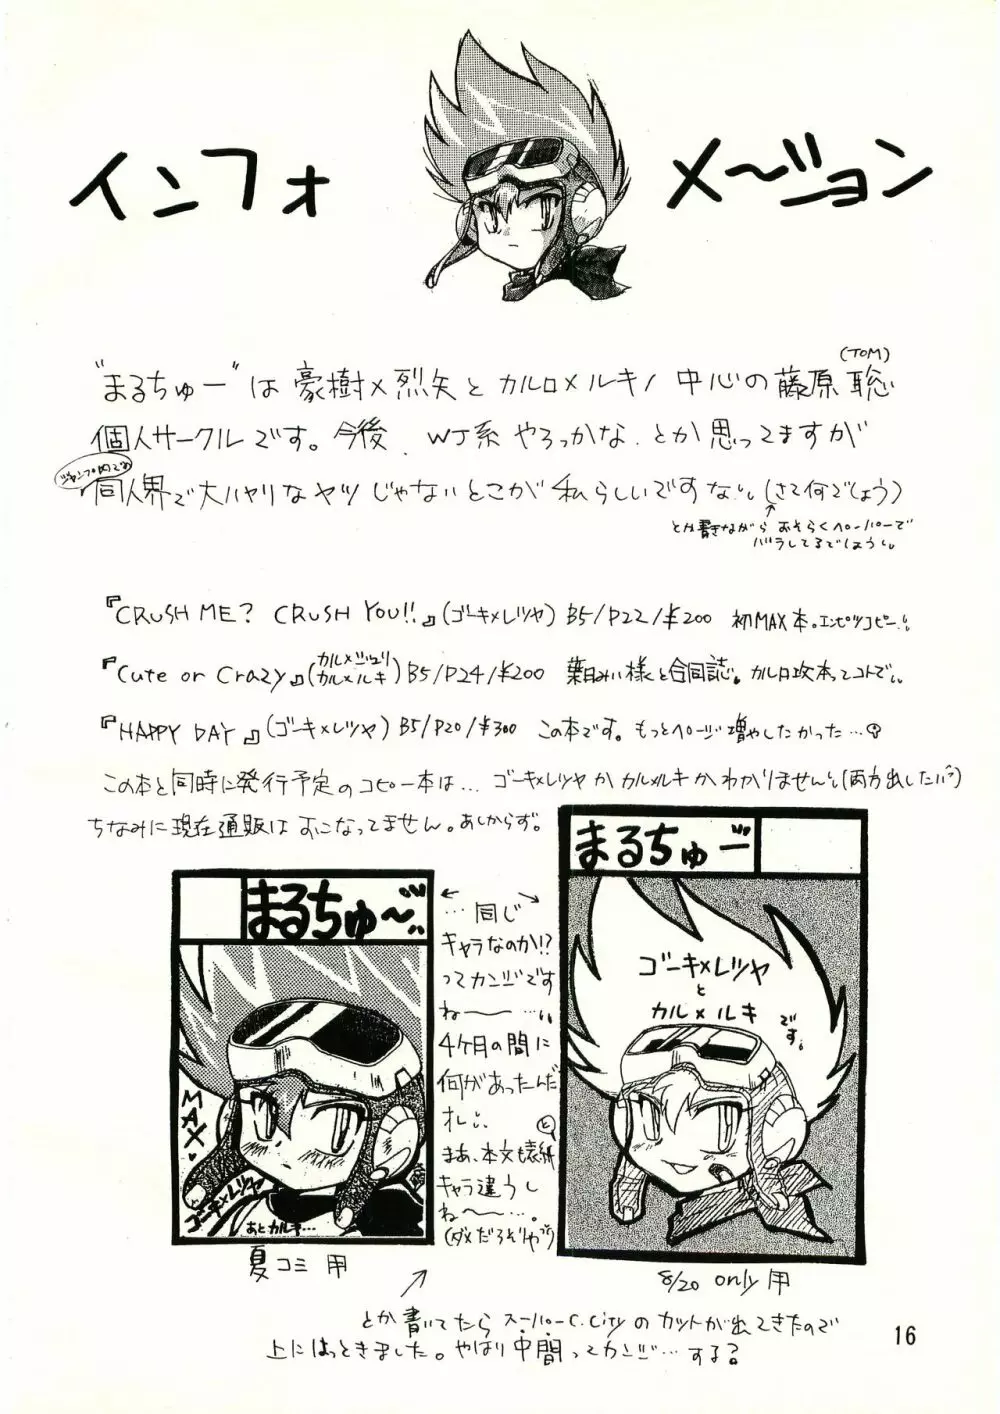 インフォメ〜ション
(TOM)
"まるちゅー"は 豪樹×烈矢と カルロ×ルキノ 中心の 藤原 聡
個人サークルです。今後、WJ系 やろっかな とか思ってますが
同人界で大ハヤリなヤツ じゃないとこが 私らしいですな (さて何でしょう)
↑
とか書きながら おそらくペーパーで
バラしてるでしょう。
『CRUSH ME? CRUSH YOU!!』(ゴーキ×レツヤ) B5/P22/¥200 初MAX本。エンピツコピー
『Cute or Crazy』(カル×ジュリ カル×ルキ) B5/P24/¥200 葉月みい様と合同誌。カルロ攻本ってコトで
『HAPPY DAY』(ゴーキ×レツヤ) B5/P20/¥300 この本です。もっとページ増やしたかった…
この本と同時に発行予定のコピー本は… ゴーキ×レツヤ か カル×ルキ かわかりません (両方出したい)
ちなみに現在通販は おこなってません。あしからず。
まるちゅ〜
MAX
ゴーキ×レツヤ
あとカルキ…
夏コミ用
← →
…同じ
キャラなのか!?
ってカンジです
ね〜…
4ヶ月の間に
何があったんだ
オレ
まあ、本文も表紙
キャラ違うし
ね〜…。
(ダメだろぞりゃ)
まるちゅー
ゴーキ×レツヤ
と
カル×ルキ
です。
8/20 only 用
とか書いてたら スーパーC.Cityの カットが出てきたので
上にはっときました。やはり中間ってカンジ… する?
16